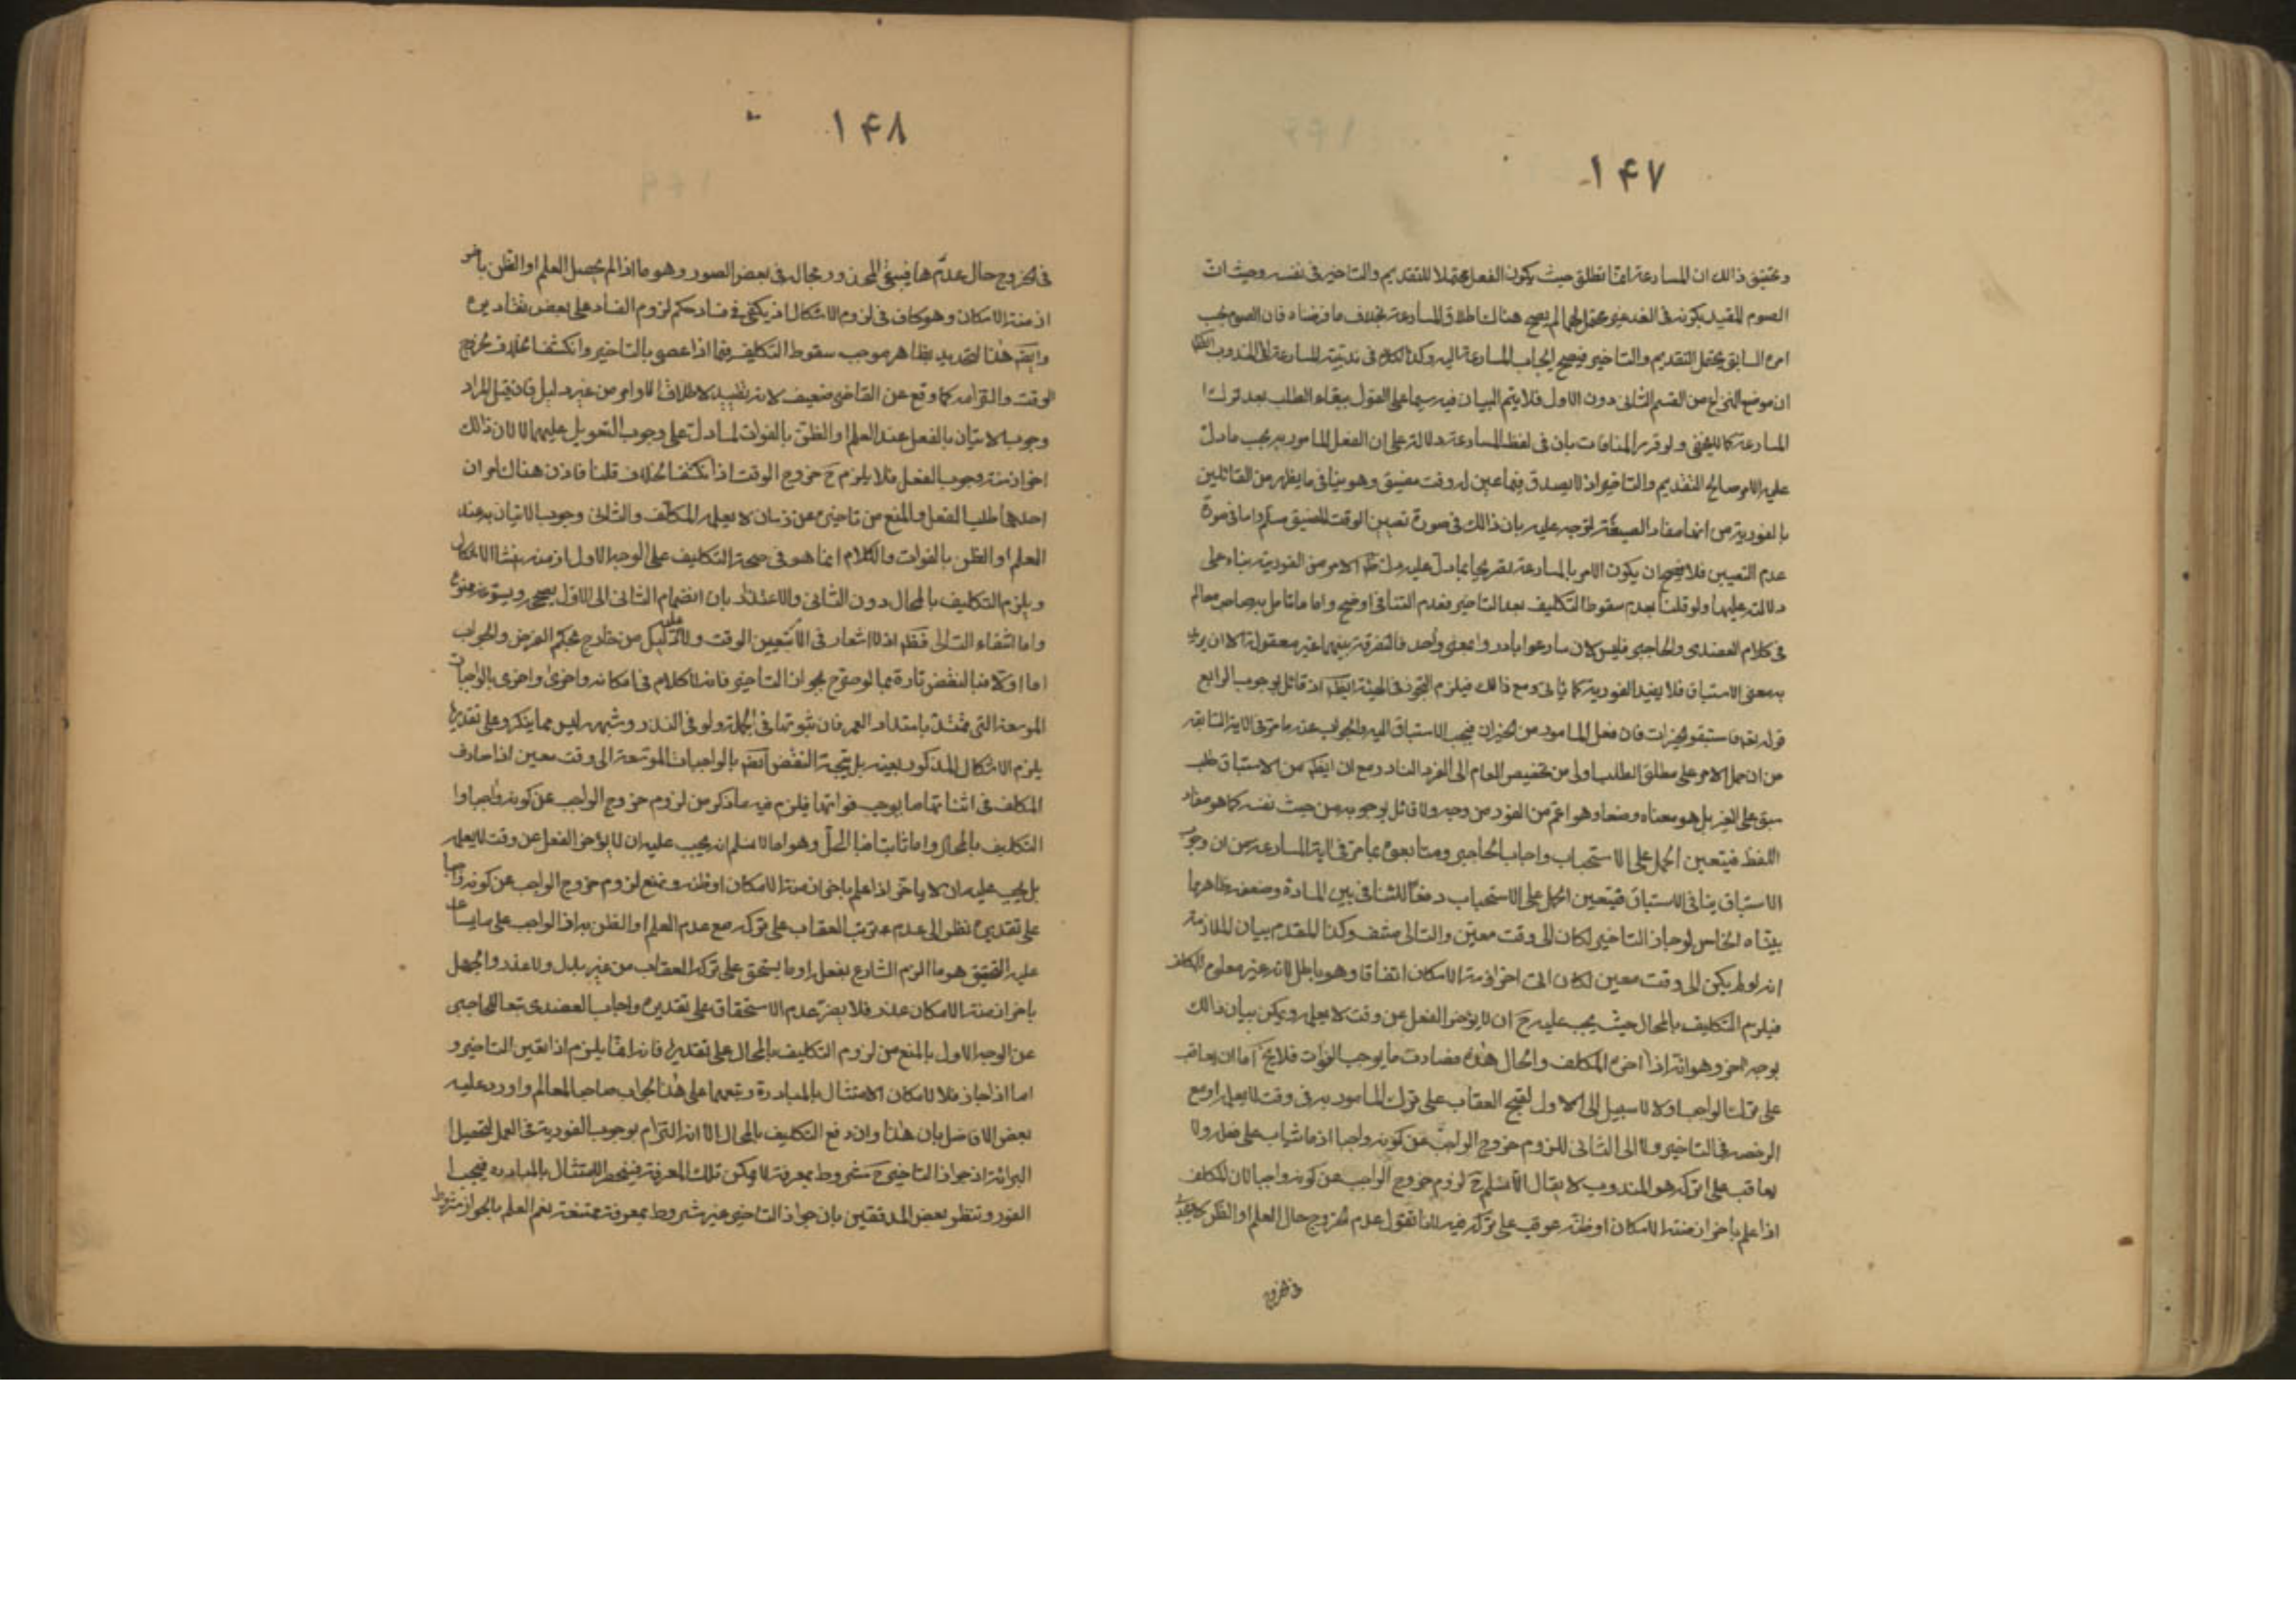 ١٤٧
وتحقيق ذالك ان المسارعة انما تطلق حيث يكون الفعل محتملا للتقديم والتاخير فى نفسه وحيث ان
الصوم المقيد بكونه فى الغد غير محتمل لهما لم يصح هناك اطلاق المسارعة بخلاف ما فرضناه فان الصوم بحسب
امره السابق يحتمل التقديم والتاخير فيصح ايجاب المسارعة اليه وكذا الكلام فى ندبية المسارعة الى المندوب
ان موضع النزاع من القسم الثانى دون الاول فلا يتم البيان فيه سيما على القول ببقاء الطلب بعد ترك
المسارعة كما لا يخفى ولو قرر المنافات بان فى لفظ المسارعة دلالة على ان الفعل المامور به بحسب ما دل
عليه الامر صالح للتقديم والتاخير اذ لا يصدق فيما عين له وقت مضيق وهو ينافى ما يظهر من القائلين
بالفورية من انها مفاد الصيغة لتوجه عليه بان ذالك فى صورة تعيين الوقت المضيق مسلم واما فى صورة
عدم التعيين فلا فيصح ان يكون الامر بالمسارعة تصريحا بما دل عليه الامر من الفورية بناء على
دلالته عليها ولو قلنا بعدم سقوط التكليف بعد التاخير فعدم التنافى اوضح واما ما تامل به صاحب المعالم
فى كلام العضدى والحاجبى فليس لان سارعوا وبادروا بمعنى واحد فالتفرقة بينهما غير معقولة الا ان يريد
به معنى الاستباق فلا يفيد الفورية كما ياتى ومع ذالك فيلزم التجوز فى الهيئة ايضا اذ قائل بوجوبه الرابع
قوله تعم فاستبقوا الخيرات فان فعل المامور من الخيرات فيجب الاستباق اليه والجواب عنه ما مر فى الاية السابقة
من ان حمل الامر على مطلق الطلب اولى من تخصيص العام الى الفرد النادر مع ان الظاهر من الاستباق طلب
سبق على الغير بل هو معناه وضعا وهو اعم من الفور من وجه ولا قائل بوجوبه من حيث نفسه كما هو مفاد
اللفظ فيتعين الحمل على الاستحباب واجاب الحاجبى ومتابعوه بما مر فى اية المسارعة من ان وجوب
الاستباق ينافى الاستباق فيتعين الحمل على الاستحباب دفعا للتنافى بين المادة وضعفه ظاهر مما
بيناه الخامس لو جاز التاخير لكان الى وقت معين والتالى منتف وكذا المقدم بيان الملازمة
انه لو لم يكن الى وقت معين لكان الى اخر ازمنة الامكان اتفاقا وهو باطل لانه غير معلوم للمكلف
فيلزم التكليف بالمحال حيث يجب عليه ح ان لا يؤخر الفعل عن وقت لا يعلمه ويمكن بيان ذالك
بوجه اخر وهو انه اذا اخره المكلف والحال هذه فصادف ما يوجب الفوات فلا يخ اما ان يعاقب
على ترك الواجب او لا لا سبيل الى الاول لقبح العقاب على ترك المامور به فى وقت لا يعلمه او مع
الرخصة فى التاخير ولا الى الثانى للزوم خروج الواجب عن كونه واجبا اذ ما يثاب على فعله ولا
يعاقب على تركه هو المندوب لا يقال لا نسلم ح لزوم خروج الواجب عن كونه واجبا لان المكلف
اذا علم باخر ازمنة الامكان او ظنه عوقب على تركه فيه لانا نقول عدم الخروج حال العلم او الظن
فى الخروج
١٤٨
فى الخروج حال عدمها فيبقى المحذور بحاله فى بعض الصور وهو ما اذا لم يحصل العلم او الظن باخر
ازمنة الامكان وهو كاف فى لزوم الاشكال اذ يكفى فى فساد حكم لزوم الفساد على بعض تقاديره
وايضا هذا التحديد بظاهره يوجب سقوط التكليف فيما اذا عصى بالتاخير وانكشف الخلاف لخروج
الوقت والتزامه كما وقع عن القاضى ضعيف لانه تقييد لاطلاق الاوامر من غير دليل فان قيل المراد
وجوب الاتيان بالفعل عند العلم او الظن بالفوات لما دل على وجوب التعويل عليهما لا لان ذالك
اخر ازمنة وجوب الفعل فلا يلزم ح خروج الوقت اذا انكشف الخلاف قلنا فاذن هناك امران
احدهما طلب الفعل والمنع من تاخيره عن زمان لا يعلمه المكلف والثانى وجوب الاتيان به عند
العلم او الظن بالفوات والكلام انما هو فى صحة التكليف على الوجه الاول اذ منه ينشا الاشكال
ويلزم التكليف بالمحال دون الثانى والاعتذار بان انضمام الثانى الى الاول يصححه ويسوغه ممنوع
واما انتفاء التالى فظاهر اذ لا اشعار فى الامر بتعيين الوقت ولا دليل عليه من خارج بحكم الفرض والجواب
اما اولا فبالنقض تارة بما لو صرح بجواز التاخير فانه لا كلام فى امكانه واخرى بالواجبات
الموسعة التى تمتد بامتداد العمر فان ثبوتها فى الجملة ولو فى النذر وشبهه ليس مما ينكر وعلى تقديرها
يلزم الاشكال المذكور بعينه بل يتجه النقض ايضا بالواجبات الموسعة الى وقت معين اذا صادف
المكلف فى اثنائها ما يوجب فواتها فيلزم فيه ما ذكر من لزوم خروج الواجب عن كونه واجبا او
التكليف بالمحال واما ثانيا فبالحل وهو انا لا نسلم انه يجب عليه ان لا يؤخر الفعل عن وقت لا يعلمه
بل يجب عليه ان لا ياخر اذا علم باخر ازمنة الامكان او ظنه ونمنع لزوم خروج الواجب عن كونه واجبا
على تقديره نظرا الى عدم ترتب العقاب على تركه مع عدم العلم او الظن به اذ الواجب على ما يساعد
عليه التحقيق هو ما الزم الشارع بفعله او ما يستحق على تركه العقاب من غير بدل ولا عذر والجهل
باخر ازمنة الامكان عذر فلا يضر عدم الاستحقاق على تقديره واجاب العضدى تبعا للحاجبى
عن الوجه الاول بالمنع من لزوم التكليف بالمحال على تقديره فانه انما يلزم اذا تعين التاخير و
اما اذا جاز فلا لامكان الامتثال بالمبادرة وتبعهما على هذا الجواب صاحب المعالم واورد عليه
بعض الافاضل بان هذا وان دفع التكليف بالمحال الا انه التزام بوجوب الفورية فى العمل لتحصيل
البرائة اذ جواز التاخير ح مشروط بمعرفة لا يمكن تلك المعرفة فينحصر الامتثال بالمبادرة فيجب
الفور وتنظر بعض المدققين بان جواز التاخير غير مشروط بمعرفة ممتنعة نعم العلم بالجواز مشروط